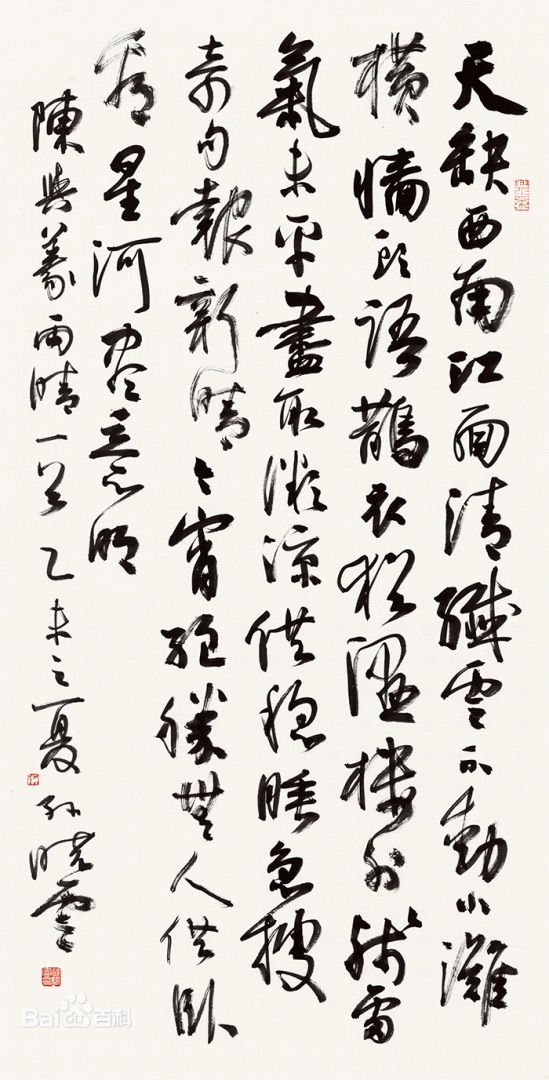 天缺西南江面清纖雲不動小灘
橫墻頭語鵲衣猶溼樓外殘雷
氣未平盡取微涼供穩睡急搜
奇句報新晴今宵絕勝無人供臥
看星河盡意明
陳與義雨晴一首 乙未之夏 孫曉雲
Baidu百科